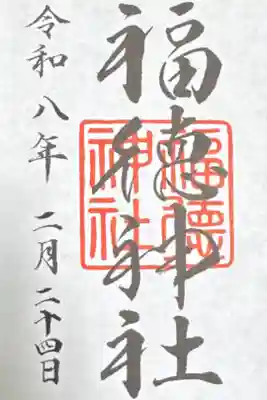 福徳神社
福徳
神社
令和八年 二月二十四日